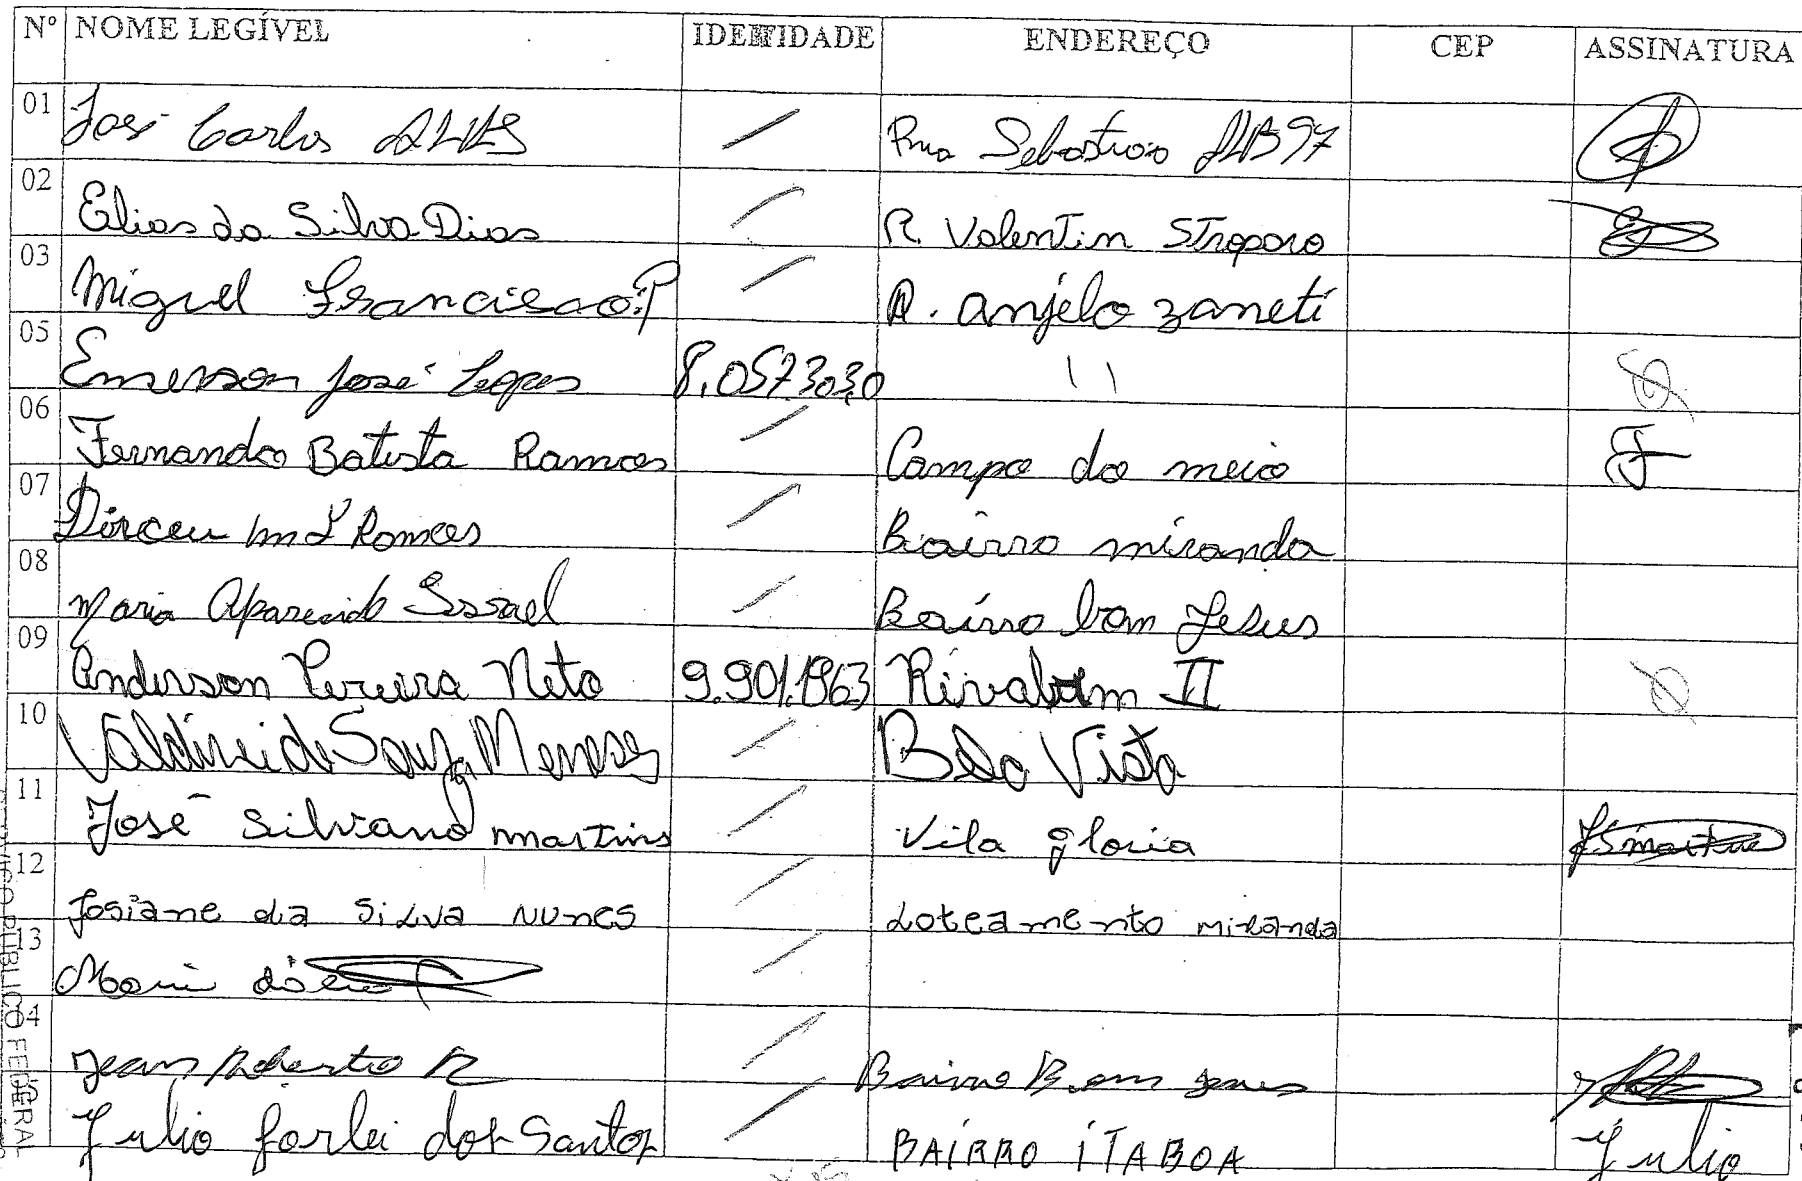 Nº NOME LEGÍVEL IDENTIDADE ENDEREÇO CEP ASSINATURA
01 José Carlos Alves / Rua Sebastiao 97
02 Elias da Silva Dias / R. Valentin Stroparo
03 Miguel Francisco P / R. anjelo zaneti
05 Emerson José Lopes 8.057.303.0 \\
06 Fernando Batista Ramos / Campo do meio F
07 Dirceu Ramos / Bairro miranda
08 Maria Aparecida Israel / Bairro bom Jesus
09 Anderson Pereira Neto 9.901.1963 Rivabem II
10 Valdinei de Souza Meneses / Bela Vista
11 José Silvano martins / Vila gloria JSmartins
12 Josiane da Silva Nunes / Loteamento miranda
13 /
04 Jean Roberto R / Bairro Bom Jesus
Julio dos Santos / BAIRRO ITABOA Julio
PÚBLICO FEDERAL